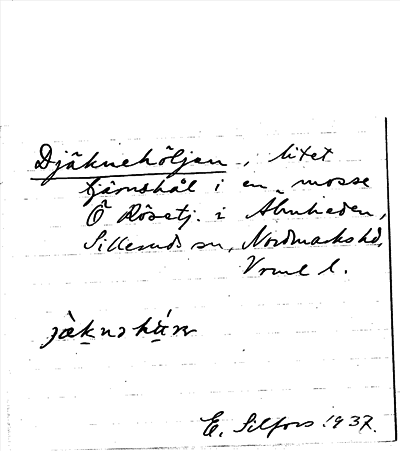 Djäknehöljen, litet
tjärnshål i en mosse
Ö Rösetj. i Almheden,
Silleruds sn, Nordmarks hd,
Vrml l.
E. Silfors 1937.